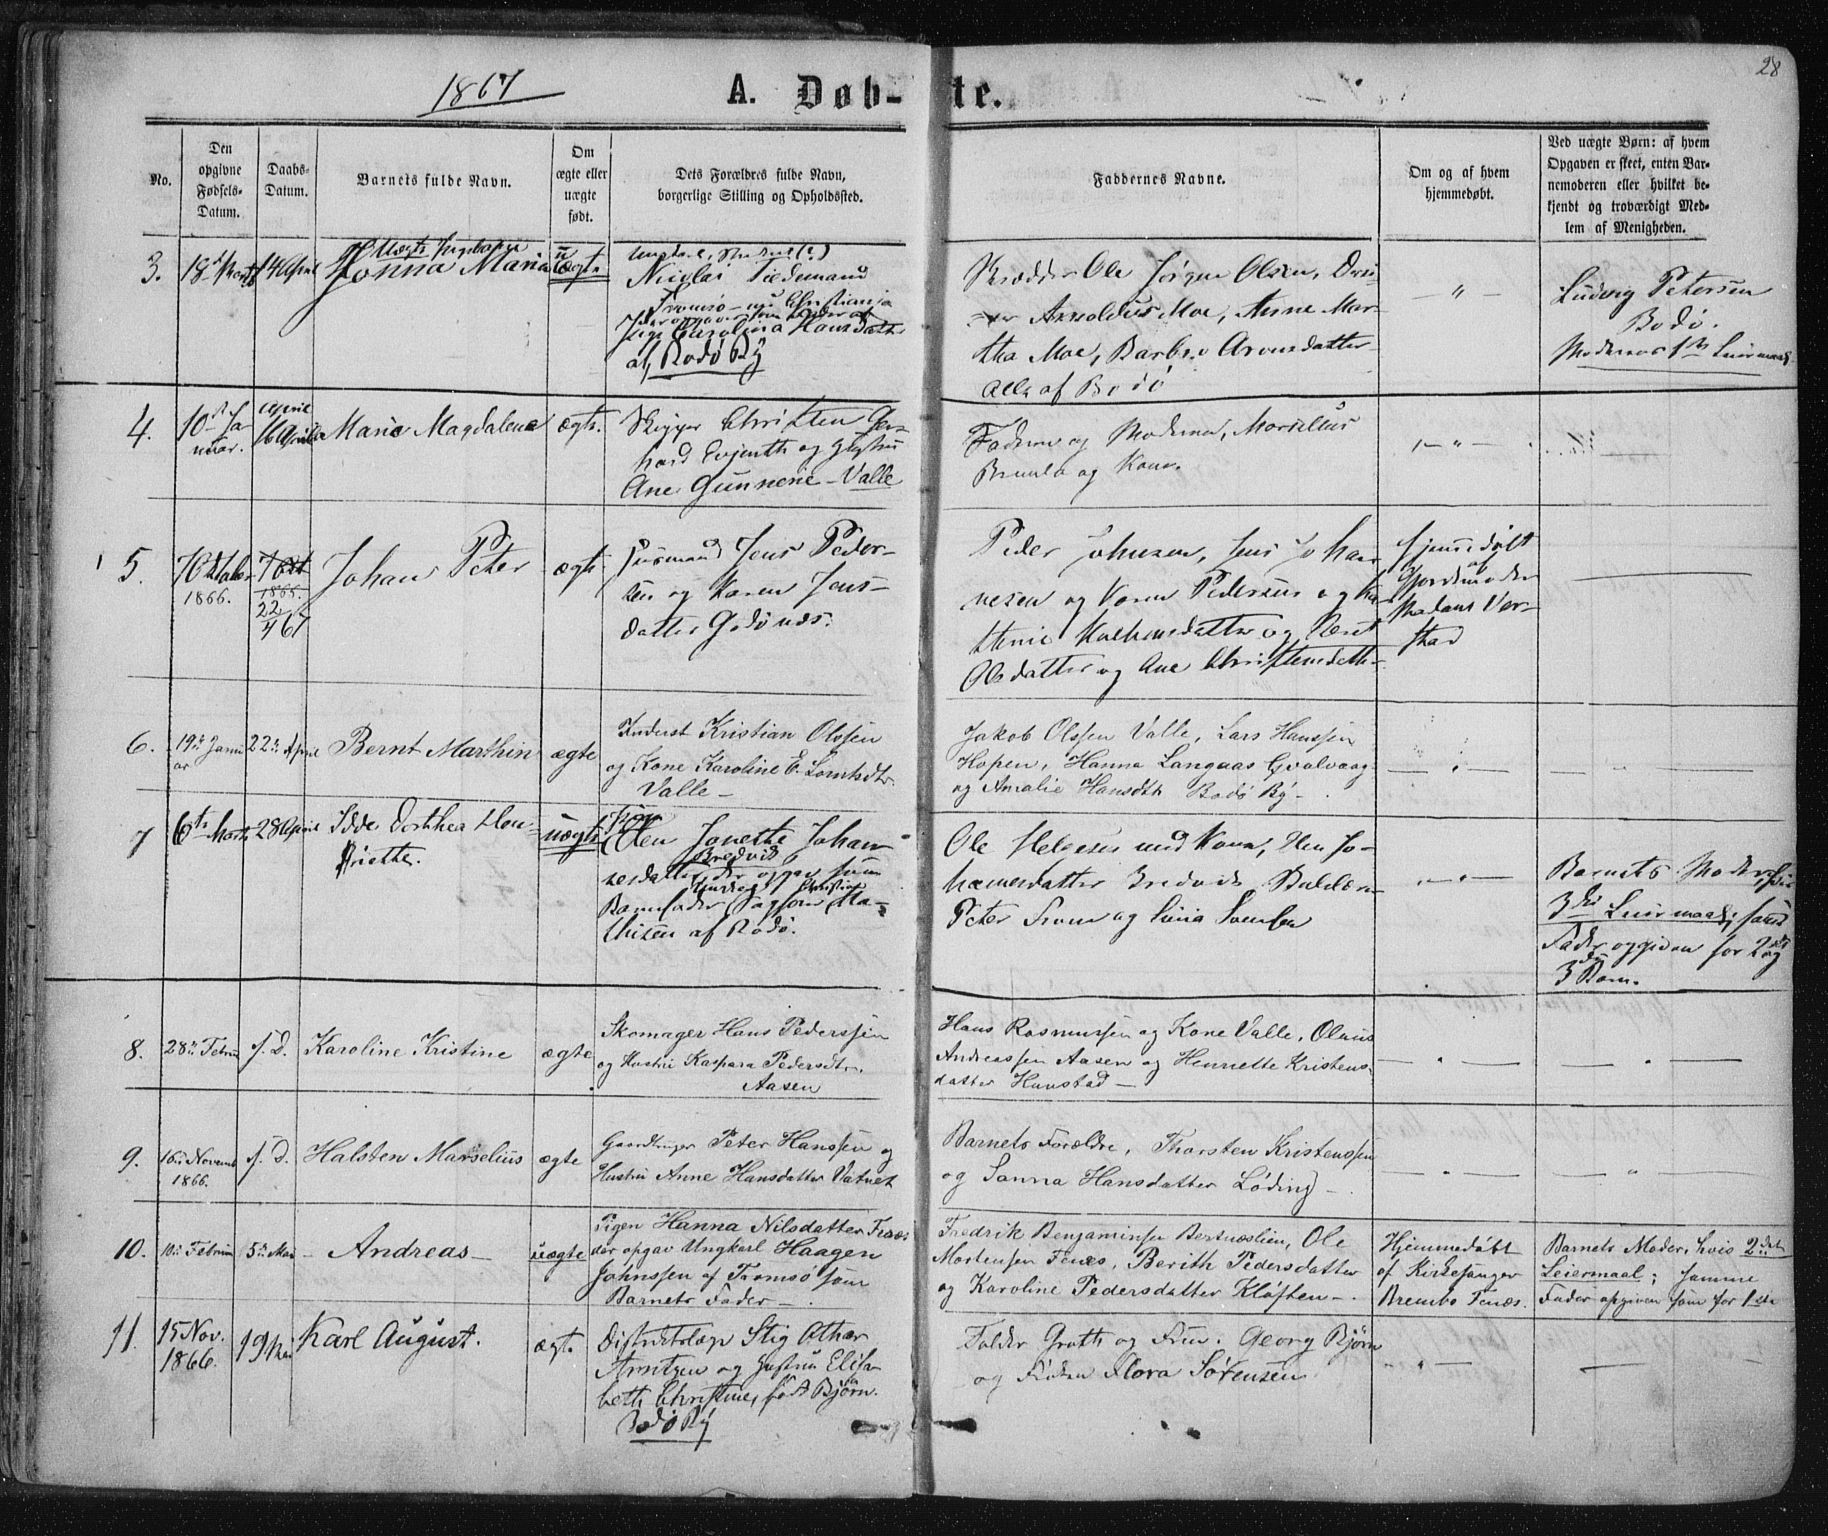 28
1867
A. Døb- te.
No.
Den opgivne Fødsels-Datum.
Daabs-Datum.
Barnets fulde Navn.
Om ægte eller uægte født.
Dets Forældres fulde Navn, borgerlige Stilling og Opholdssted.
Faddernes Navne.
Om og af hvem hjemmedøbt.
Ved uægte Børn: af hvem Opgaven er skeet, enten Barnemoderen eller hvilket bekjendt og troværdigt Medlem af Menigheden.
3. 14 April
Hanna Maria
Nicolai Tidemand
Tromsø - nu Christiania
Pige Carolina Hansdatter
af Bodø By
Ole Jørgen Olsen,
Arnoldus Moe, Anne Mar-
tha Moe, Aronsdatter
alle af Bodø
— " —
Ludvig Petersen
Bodø.
Moderens 1ste Leiermaal
4. 10de Ja-
nuar.
16 April
Marie Magdalena
ægte.
Christen Ger-
hard Evjenth og Hustru
Ane Gunnerie - Valle
Faderen og Moderen,
og Kone.
— " —
5. 7 Oktober
1866.
7 Okt
1866.
22/4 67
Johan Peter
ægte
Huusmand Jens Peder-
sen og Karen Jens-
datter Godønæs.
Peder Johnsen, Jens Johan-
nesen og Karen Pedersens og Ka-
thrie og Beret
Olsdatter og Ane Christensdatter
Hjemmedøbt
af
Gjordmoder
Madam Ver-
stad
6. 19de Janu
ar
22de April
Bernt Marthin
ægte
Inderst Kristian Olssen
og Kone Karoline E. Lorntsdtr
Valle -
Jakob Olssen Valle, Lars Hanssen
Hopen, Hanna Langaas Gvalvaag
og Amalie Hansdtr Bodø By -
7 6te Marts 28 April
Ida Dorthea Hen-
riette.
uægte
Pigen
Elen Janette Johan-
Bredvik
nesdatter, der opgav som
Barnefader
thisen af Bodø.
Ole Helgesen med Kone, Elen Jo-
hannesdatter Bredvik
Peter
Barnets Moder, hvis
3die Leiermaal; samme
Fader opgiven for 2det og
3die Barn.
8. 28de Febru
s. D.
Karoline Kristine
ægte
Skomager Hans Pederssen
og Hustru Kaspara Pedersdtr.
Aasen
Hans Rasmussen og Kone Valle, Olaus
Andreassen Aasen og Hennette Kristens-
datter Hunstad -
9. 16de Novemb
1866.
s. D.
Halsten Marselius
ægte
Gaardbruger Peter Hanssen og
Hustru Anne Hansdatter Vatnet
Barnets Forældre, Thorsten Kristenssen
og Sanna Hansdatter Løding -
10. 10de Februar 5te Mai
- Andreas -
uægte
Pigen Hanna Nilsdatter Fenes
der opgav Ungkarl Haagen
Johnssen af Tromsø som
Barnets Fader -
Fredrik Benjaminsen Bertnæslien, Ole
Mortensen Fenes, Berith Pedersdatter
og Karoline Pedersdatter Kløften -
Hjemmedøbt
af Kirkesanger
Brembo Fenæs.
Barnets Moder, hvis 2det
Leiermaal; samme
Fader opgiven som for 1ste
11. 15 Nov.
1866.
19 Mai
Karl August.
ægte.
Distriktslæge Stig Othar
Arntzen og Hustru Elisa-
beth Christine, født Bjørn.
Bodø By
Foged Groth og Frue. Georg Bjørn
og Frøken Flora Sørensen
- " -